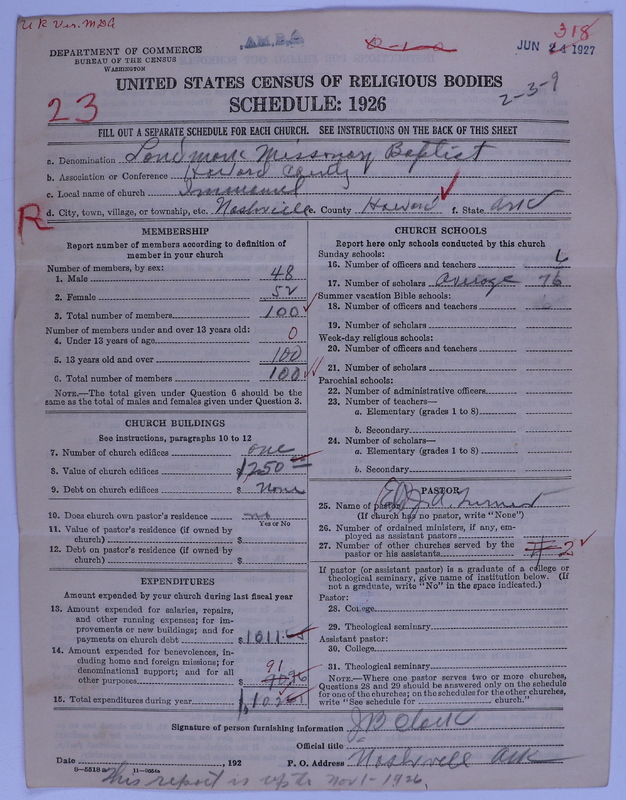 318
DEPARTMENT OF COMMERCE
BUREAU OF THE CENSUS
WASHINGTON
JUN 24 1927
UNITED STATES CENSUS OF RELIGIOUS BODIES
SCHEDULE: 1926
2-3-9
23
FILL OUT A SEPARATE SCHEDULE FOR EACH CHURCH. SEE INSTRUCTIONS ON THE BACK OF THIS SHEET
a. Denomination Landmark Missonary Baptist
b. Association or Conference Howard County
c. Local name of church Immanuel
R
d. City, town, village, or township, etc. Nashville e. County Howard f. State Ark
MEMBERSHIP
Report number of members according to definition of
member in your church
Number of members, by sex:
1. Male 48
2. Female 52
3. Total number of members 100
Number of members under and over 13 years old:
4. Under 13 years of age 0
5. 13 years old and over 100
6. Total number of members 100
NOTE.—The total given under Question 6 should be
same as the total of males and females given under Question 3.
CHURCH BUILDINGS
See instructions, paragraphs 10 to 12
7. Number of church edifices one
8. Value of church edifices $1250
9. Debt on church edifices $ None
10. Does church own pastor's residence no
Yes or No
11. Value of pastor's residence (if owned by
church) $
12. Debt on pastor's residence (if owned by
church) $
EXPENDITURES
Amount expended by your church during last fiscal year
13. Amount expended for salaries, repairs,
and other running expenses; for im-
provements or new buildings; and for
payments on church debt $1011
14. Amount expended for benevolences, in-
cluding home and foreign missions; for
denominational support; and for all
other purposes $ 91
15. Total expenditures during year $1,102
CHURCH SCHOOLS
Report here only schools conducted by this church
Sunday schools:
16. Number of officers and teachers 6
17. Number of scholars average 76
Summer vacation Bible schools:
18. Number of officers and teachers
19. Number of scholars
Week-day religious schools:
20. Number of officers and teachers
21. Number of scholars
Parochial schools:
22. Number of administrative officers
23. Number of teachers—
a. Elementary (grades 1 to 8)
b. Secondary
24. Number of scholars—
a. Elementary (grades 1 to 8)
b. Secondary
PASTOR
25. Name of pastor Turner
(If church has no pastor, write "None")
26. Number of ordained ministers, if any, em-
ployed as assistant pastors
27. Number of other churches served by the
pastor or his assistants 2
If pastor (or assistant pastor) is a graduate of a college or
theological seminary, give name of institution below. (If
not a graduate, write "No" in the space indicated.)
Pastor:
28. College
29. Theological seminary
Assistant pastor:
30. College
31. Theological seminary
NOTE.—Where one pastor serves two or more churches,
Questions 28 and 29 should be answered only on the schedule
for one of the churches; on the schedules for the other churches,
write "See schedule for church."
Signature of person furnishing information J B Clark
Official title
Date , 192 P. O. Address Nashvill Ark
8-5518a 11-9554a
This report is up to Nov 1-1926.